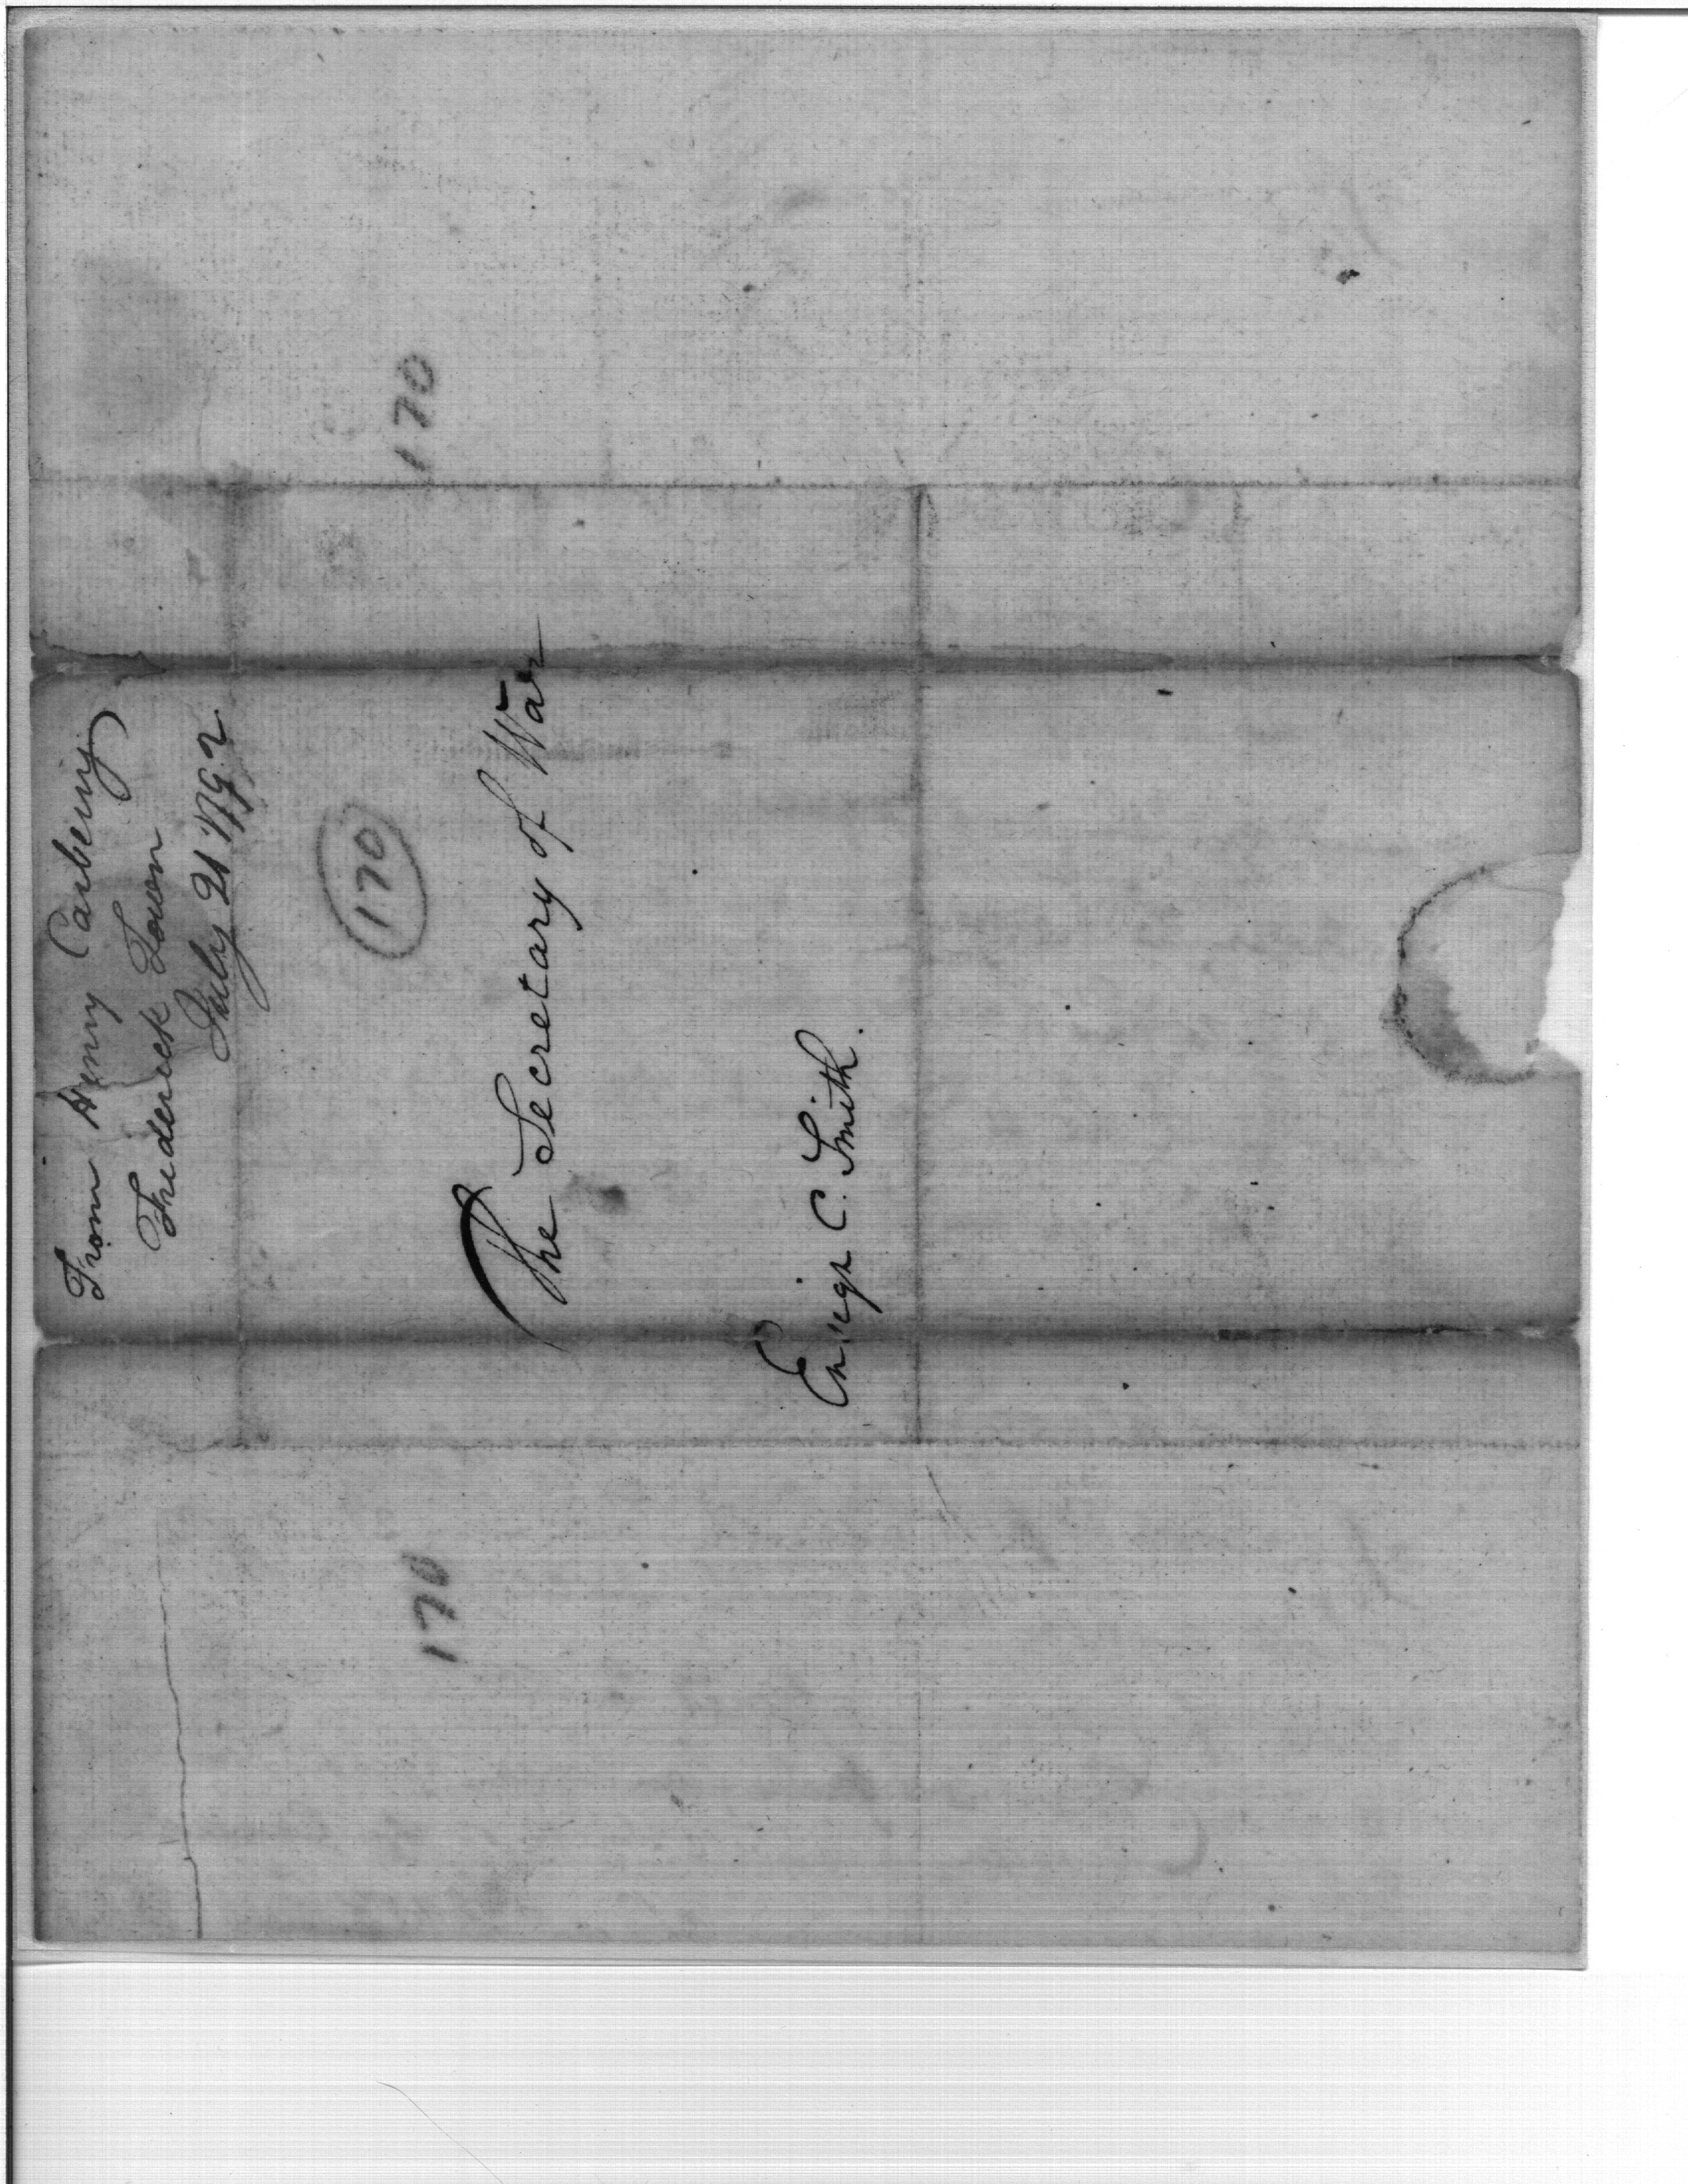 From Henry Carbery
Frederick Town
July 21 1792
170
170
170
The Secretary of War
Ensign C. Smith.